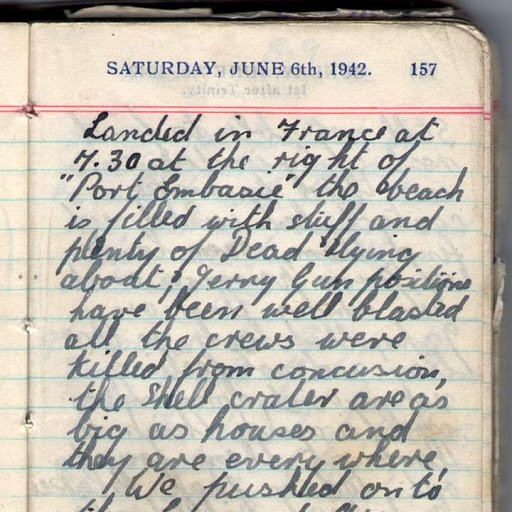 SATURDAY, JUNE 6th, 1942. 157
Landed in France at
7.30 at the right of
"Port Embasie" the beach
is filled with stuff and
plenty of Dead llying
about; Jerry Gun positions
have been well blasted
all the crews were
killed from concusion,
the shell crater are as
big as houses and
they are every where,
We pushed on to